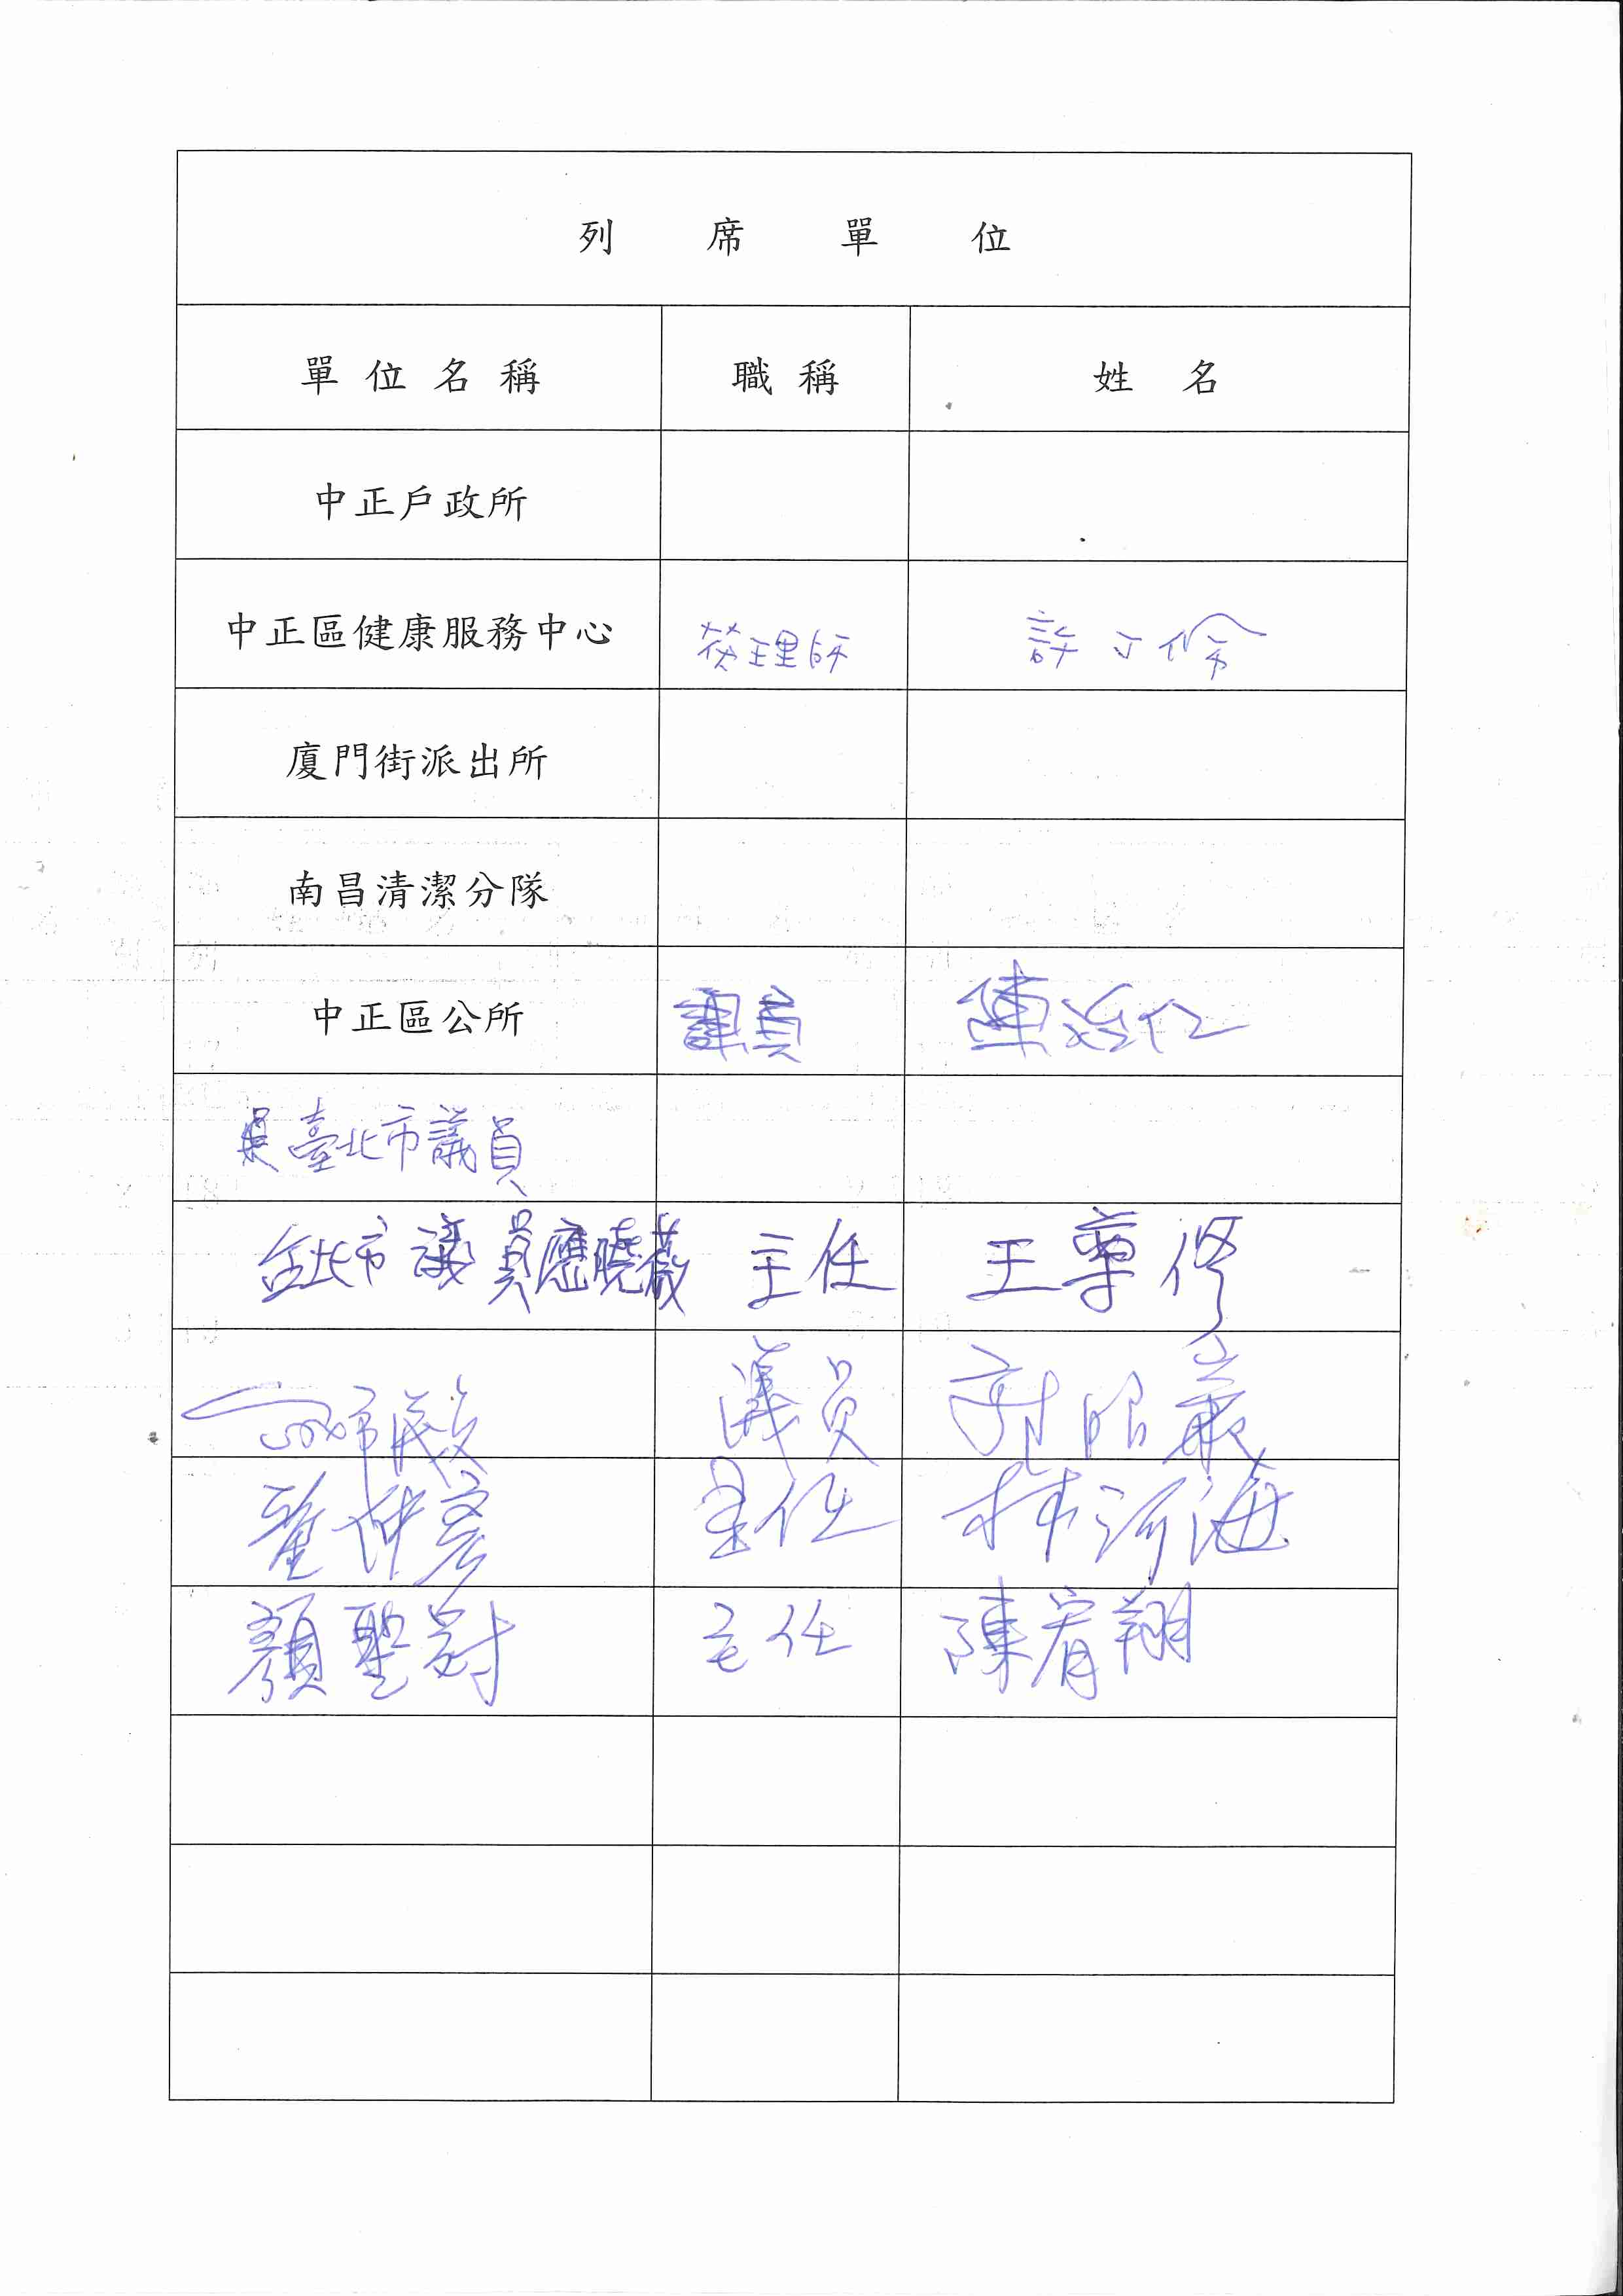 列席單位
單位名稱 職稱 姓名
中正戶政所
中正區健康服務中心 護理師 許 倫
廈門街派出所
南昌清潔分隊
中正區公所 課員 陳
臺北市議員
台北市議員應曉薇 主任 王尊修
市議 議員
童仲彥 主任 林河海
顏聖對 主任 陳宥翔